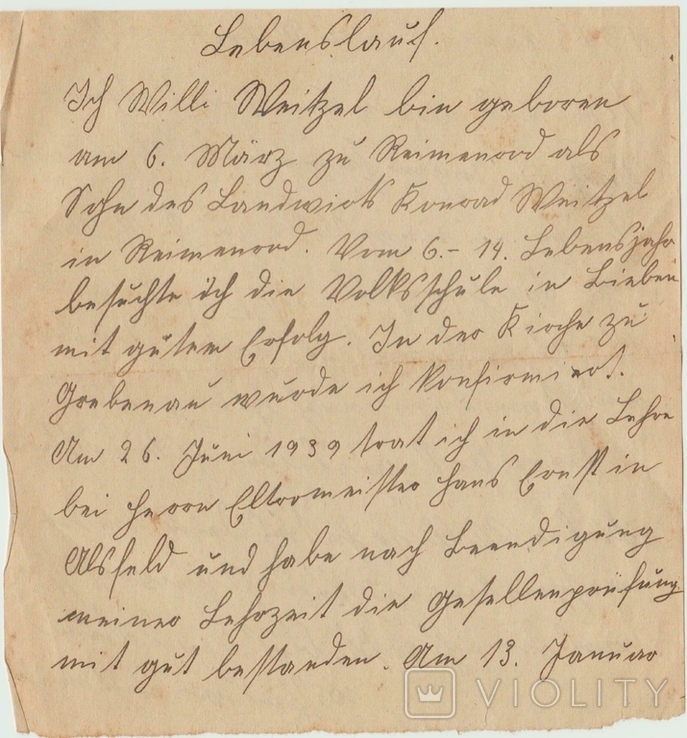 Lebenslauf.
Ich Willi Weitzel bin geboren
am 6. März zu Reimenrod als
Sohn des Landwirts Konrad Weitzel
in Reimenrod. Vom 6.- 14. Lebensjahr
besuchte ich die Volksschule in Bieben
mit gutem Erfolg. In der Kirche zu
Grebenau wurde ich konfirmiert.
Am 26. Juni 1939 trat ich in die Lehre
bei Herrn Eltormeister Hans Ernst in
Alsfeld und habe nach Beendigung
meiner Lehrzeit die Gesellenprüfung
mit gut bestanden. Am 13. Januar
VIOLITY